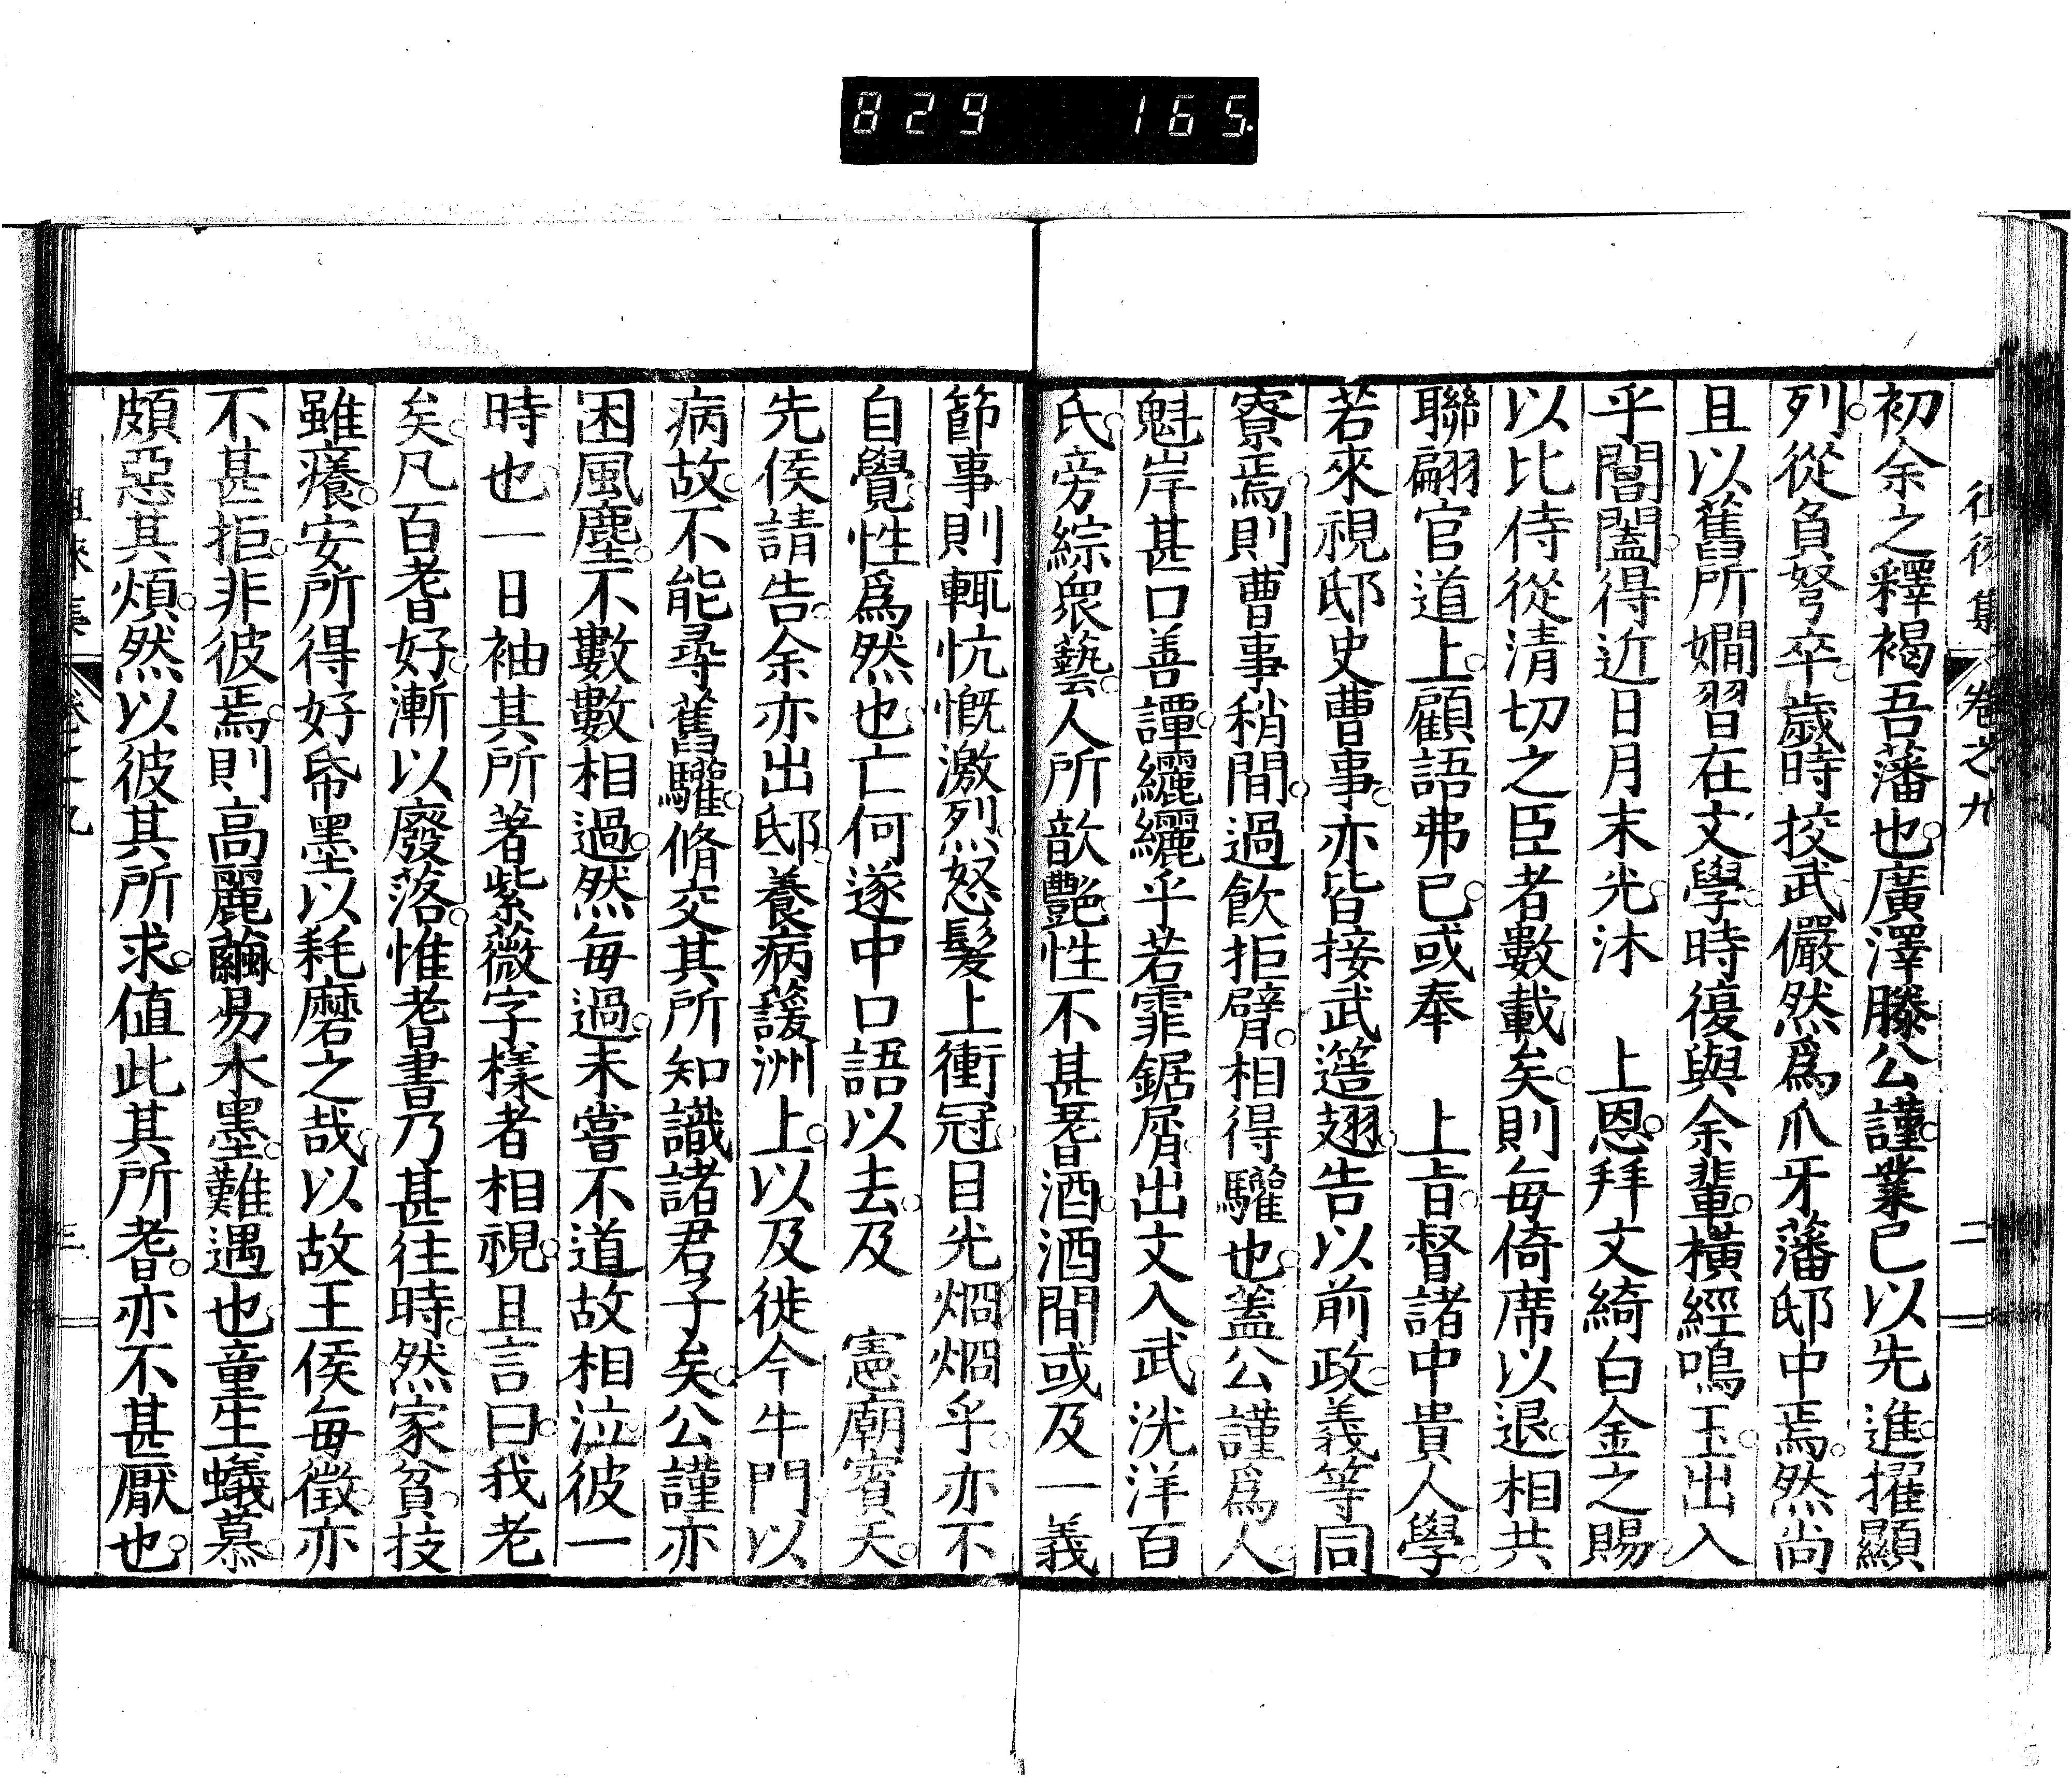 829 165.
徂徠集 卷之九 二
初余之釋褐吾藩也廣澤滕公謹業已以先進擢顯
列從負弩卒歲時挍武儼然爲爪牙藩邸中焉然尚
且以舊所嫺習在文學時復與余輩橫經鳴玉出入
乎闇闔得近日月末光沐 上恩拜文綺白金之賜
以比侍從清切之臣者數載矣則每倚席以退相共
聯翩官道上顧語弗已或奉 上旨督諸中貴人學
若來視邸史曹事亦皆接武簉翅告以前政義等同
寮焉則曹事稍間過飲拒臂相得驩也蓋公謹爲人
魁岸甚口善譚纚纚乎若霏鋸屑出文入武洸洋百
氏旁綜衆藝人所歆艷性不甚耆酒酒間或及一義
節事則輒忼慨激烈怒髮上衝冠目光烱烱乎亦不
自覺性爲然也亡何遂中口語以去及 憲廟賓天
先侯請告余亦出邸養病護洲上以及徙今牛門以
病故不能尋舊驩脩交其所知識諸君子矣公謹亦
困風塵不數數相過然每過未嘗不道故相泣彼一
時也一日袖其所著紫薇字樣者相視且言曰我老
矣凡百耆好漸以廢落惟耆書乃甚往時然家貧技
雖癢安所得好帋墨以耗磨之哉以故王侯每徵亦
不甚拒非彼焉則高麗繭易水墨難遇也童生蟻慕
頗惡其煩然以彼其所求値此其所耆亦不甚厭也
徂徠集 卷之九 三